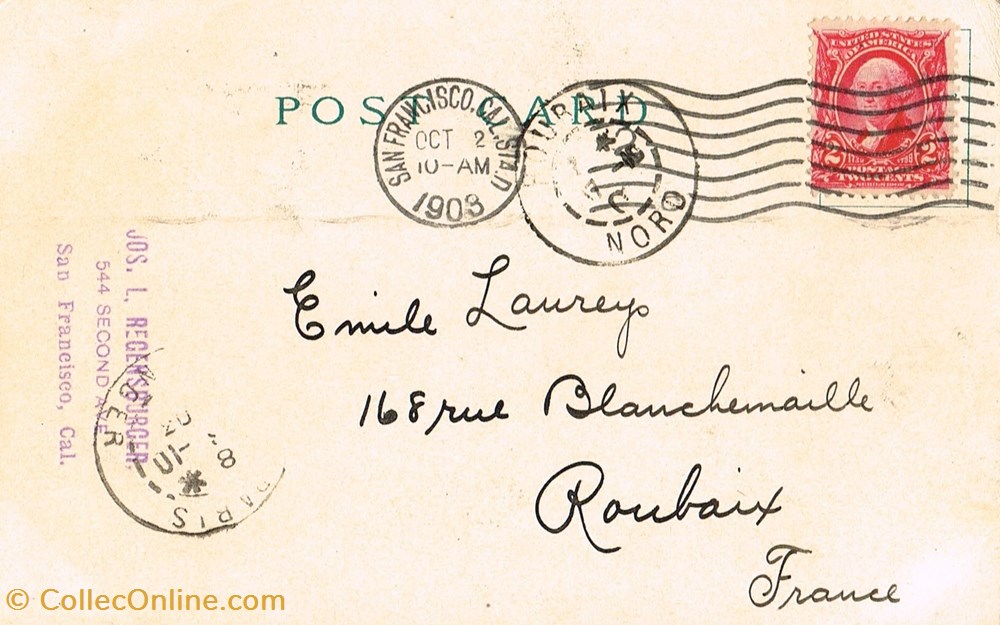 POST CARD
SAN FRANCISCO, CAL. STA. D
OCT 2
10-AM
1903
NORD
UNITED STATES
OF AMERICA
2 2
TWO CENTS
JOS. L. REGENSBURGER,
544 SECOND AVE
San Francisco, Cal.
Emile Laureys
168 rue Blanchemaille
Roubaix
France
© CollecOnline.com